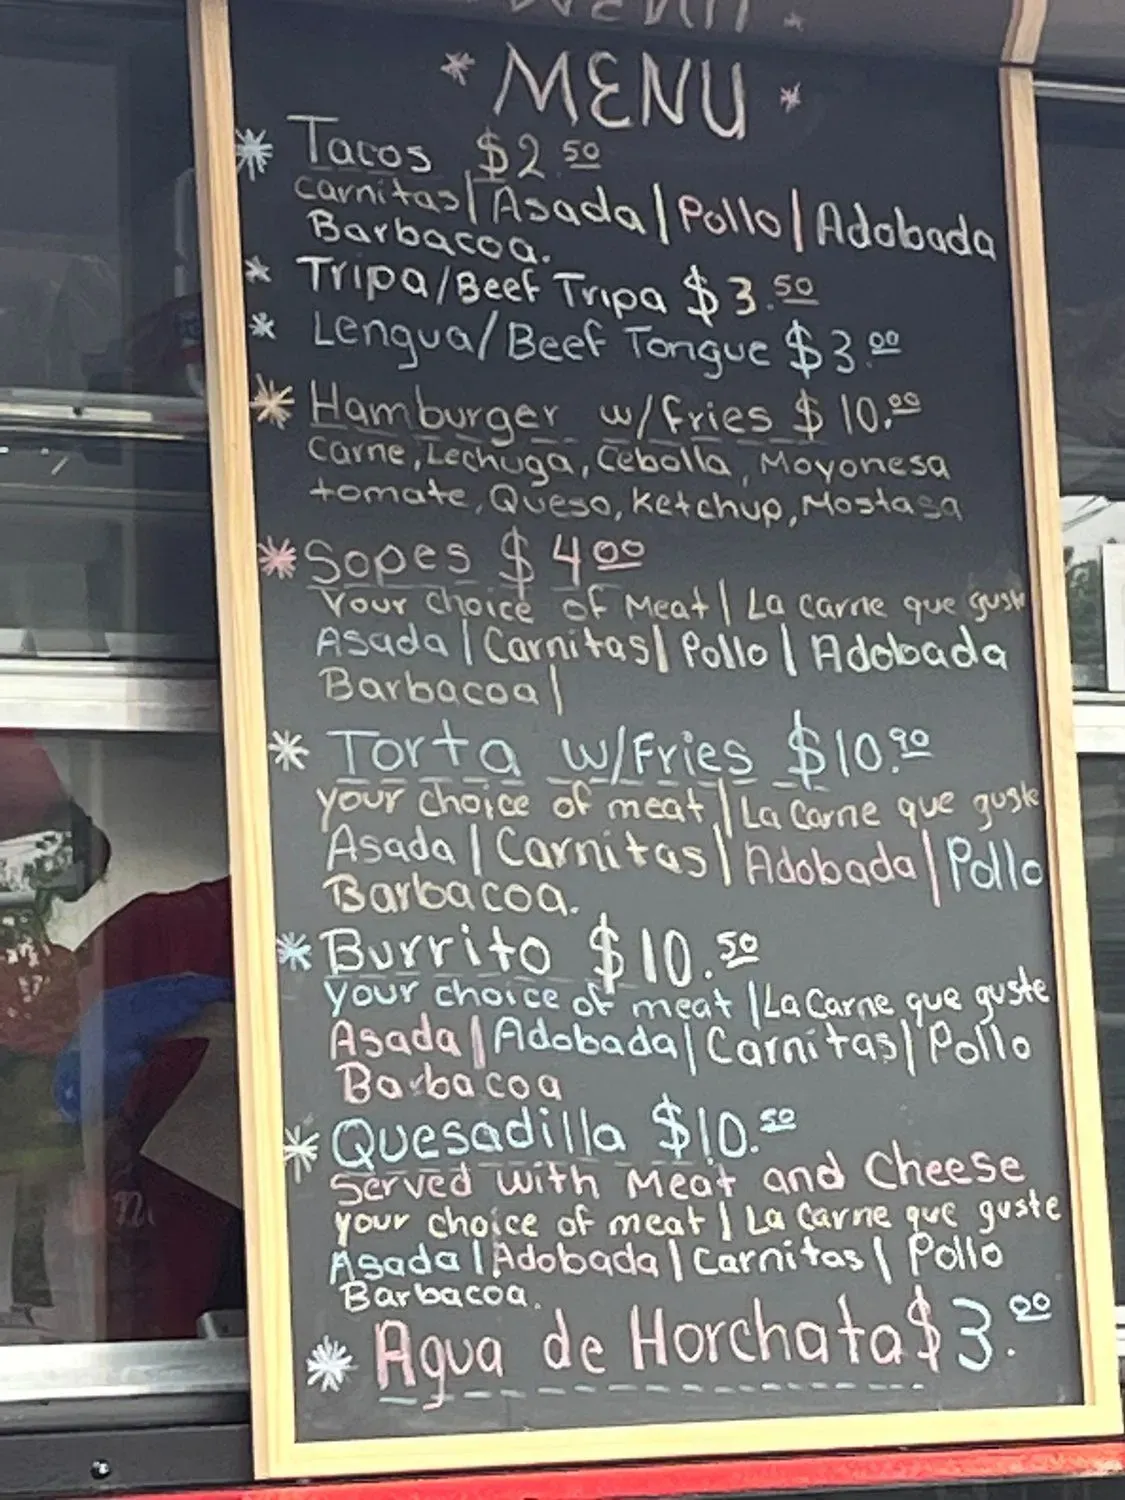 * MENU *
* Tacos $2.50
carnitas | Asada | Pollo | Adobada
Barbacoa.
* Tripa/Beef Tripa $3.50
* Lengua/Beef Tongue $3.00
* Hamburger w/fries $10.00
Carne, Lechuga, Cebolla, Moyonesa
tomate, Queso, Ketchup, Mostasa
* Sopes $4.00
Your choice of Meat | La Carne que guste
Asada | Carnitas | Pollo | Adobada
Barbacoa |
* Torta w/Fries $10.90
your choice of meat | La Carne que guste
Asada | Carnitas | Adobada | Pollo
Barbacoa.
* Burrito $10.50
your choice of meat | La Carne que guste
Asada | Adobada | Carnitas | Pollo
Barbacoa
* Quesadilla $10.50
Served with Meat and Cheese
your choice of meat | La Carne que guste
Asada | Adobada | Carnitas | Pollo
Barbacoa.
* Agua de Horchata $3.00